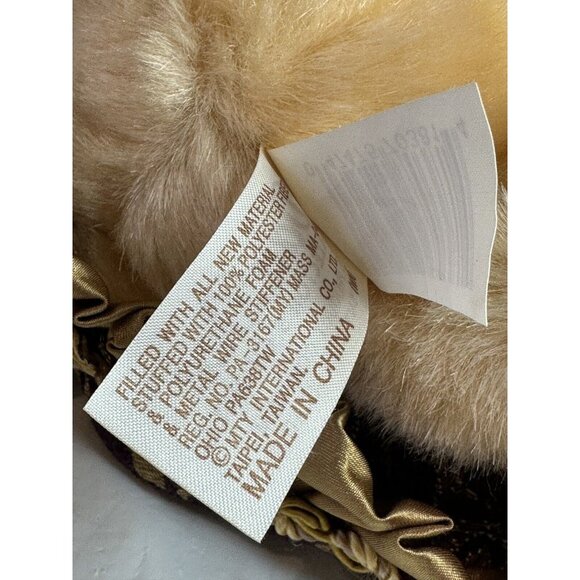 FILLED WITH ALL NEW MATERIAL
STUFFED WITH 100% POLYESTER
& POLYURETHANE FOAM
& METAL WIRE STIFFENER
REG. NO. PA-3167(MY) MASS MA-
OHIO PA638TW
© MTY INTERNATIONAL CO., LTD
TAIPEI, TAIWAN.
MADE IN CHINA